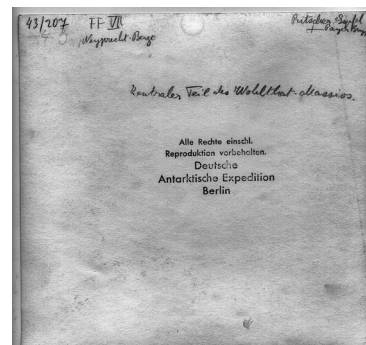 43/207 FF VII
Weyprecht-Berge
Ritscher-Gipfel
Zentraler Teil des Wohlthat-Massivs.
Alle Rechte einschl.
Reproduktion vorbehalten.
Deutsche
Antarktische Expedition
Berlin